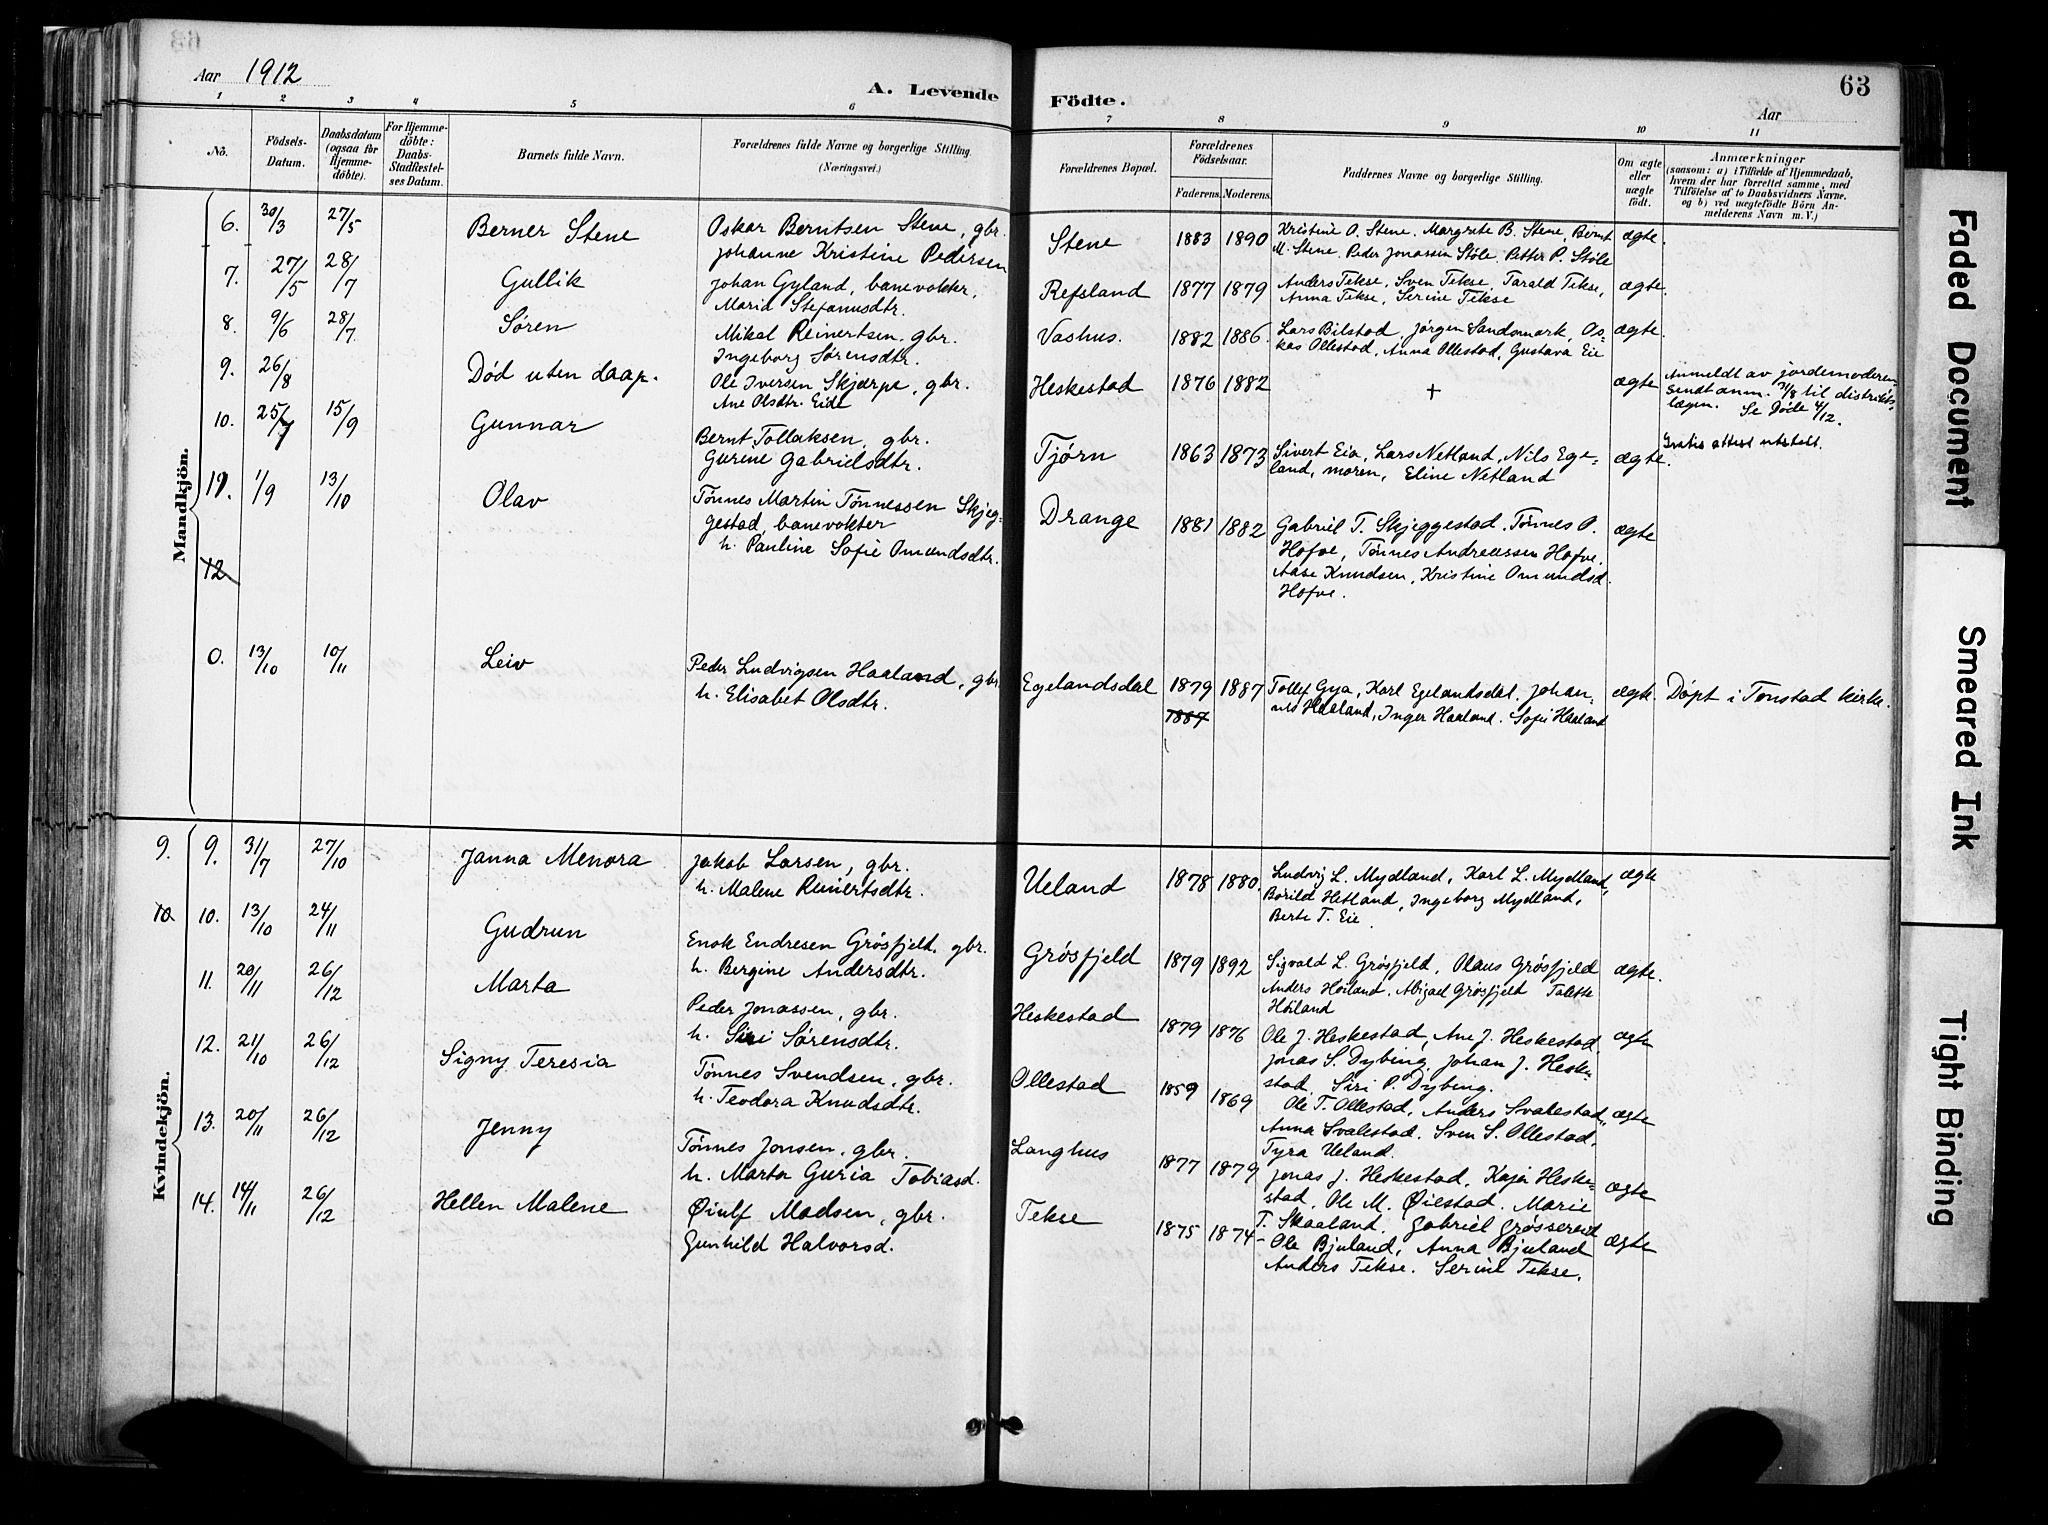 Aar 1912
A. Levende
1 2 3 4 5 6
No.
Födsels-
Datum.
Daabsdatum
(ogsaa for
Hjemme-
döbte).
For Hjemme-
döbte:
Daabs-
Stadfæstel-
ses Datum.
Barnets fulde Navn.
Forældrenes fulde Navne og borgerlige Stilling.
(Næringsvei.)
Mandkjön.
6. 30/3 27/5 Berner Stene Oskar Berntsen Stene, gbr.
Johanne Kristine Pedersen
7. 27/5 28/7 Gullik Johan Gyland, banevokter.
Marid Stefanusdtr.
8. 9/6 28/7 Søren Mikal Reinertsen, gbr.
Ingeborg Sørensdtr.
9. 26/8 Død uten daap. Ole Iversen Skjærpe, gbr.
Ane Olsdtr. Eide
10. 25/7 15/9 Gunnar
Bernt Tollaksen, gbr.
Gurine Gabrielsdtr.
11. 1/9 13/10 Olav Tønnes Martin Tønnessen Skjeg-
gestad, banevokter
h. Pauline Sofie Omundsdtr.
12
0. 13/10 10/11 Leiv Peder Ludvigsen Haaland, gbr.
h. Elisabet Olsdtr.
Kvindekjön.
9. 9. 31/7 27/10 Janna Menora Jakob Larsen, gbr.
h. Malene Reinertsdtr.
10 10. 13/10 24/11 Gudrun
Enok Endresen Grøsfjeld, gbr.
h. Bergine Andersdtr.
11. 20/11 26/12 Marta
Peder Jonassen, gbr.
h. Siri Sørensdtr.
12. 21/10 26/12 Signy Teresia
Tønnes Svendsen, gbr.
h. Teodora Knudsdtr.
13. 20/11 26/12 Jenny
Tønnes Jonsen, gbr.
h. Marta Guria Tobiasd.
14. 14/11 26/12 Hellen Malene Øiulf Madsen, gbr.
Gunhild Halvorsd.
63
Födte.
Aar
7 8 9 10 11
Forældrenes Bopæl.
Forældrenes
Födselsaar.
Faderens. Moderens.
Faddernes Navne og borgerlige Stilling.
Om ægte
eller
uægte
födt.
Anmærkninger
(saasom: a) i Tilfælde af Hjemmedaab,
hvem der har forrettet samme, med
Tilföielse af to Daabsvidners Navne,
og b) ved uægtefödte Börn An-
melderens Navn m. V.)
Stene 1883 1890 Kristine O. Stene, Margrete B. Stene, Bernt ægte.
M. Stene. Peder Jonassen Støle. Petter P. Støle
Refsland 1877 1879 Anders Tekse, Sven Tekse, Tarald Tekse, ægte.
Anna Tekse, Serine Tekse
Vashus. 1882 1886. Lars Bilstad, Jørgen Sandsmark, Os- ægte.
kar Ollestad, Anna Ollestad, Gustava Eie
Heskestad 1876 1882 + ægte Anmeldt av jordemoderen,
sendt anm. 31/8 til distrikts-
lægen. Se Døde 4/12.
Gratis attest utstedt.
Tjørn 1863 1873 Sivert Eia, Lars Netland, Nils Ege- ægte.
land, moren, Eline Netland
Drange 1881 1882 Gabriel T. Skjeggestad. Tønnes O. ægte
Hofve, Tønnes Andreassen Hofve.
Aase Knudsen, Kristine Omundsd.
Hofve.
Egelandsdal 1879 1887 Tollef Gya, Karl Egelandsdal, Johan- ægte. Døpt i Tonstad kirke.
1887 nes Haaland, Inger Haaland. Sofie Haaland
Ueland 1878 1880. Ludvig L. Mydland, Karl L. Mydland, ægte
Borild Hetland, Ingeborg Mydland,
Berte T. Eie
Grøsfjeld 1879 1892 Sigvald L. Grøsfjeld, Olaus Grøsfjeld ægte.
Anders Høiland, Abigael Grøsfjeld Talette
Høiland
Heskestad 1879 1876 Ole J. Heskestad, Ane J. Heskestad, ægte
Jonas S. Dybing, Johan J. Heske-
stad, Siri P. Dybing.
Ollestad 1859 1869 Ole T. Ollestad, Anders Svalestad, ægte
Anna Svalestad. Sven S. Ollestad,
Tyra Ueland.
Langhus 1877 1879 Jonas J. Heskestad, Kaja Heske- ægte
stad, Ole M. Øiestad. Marie
T. Skaaland. Gabriel Grøssereid
Tekse 1875 1874 - Ole Bjuland, Anna Bjuland ægte
Anders Tekse. Serine Tekse.
Faded Document
Smeared Ink
Tight Binding